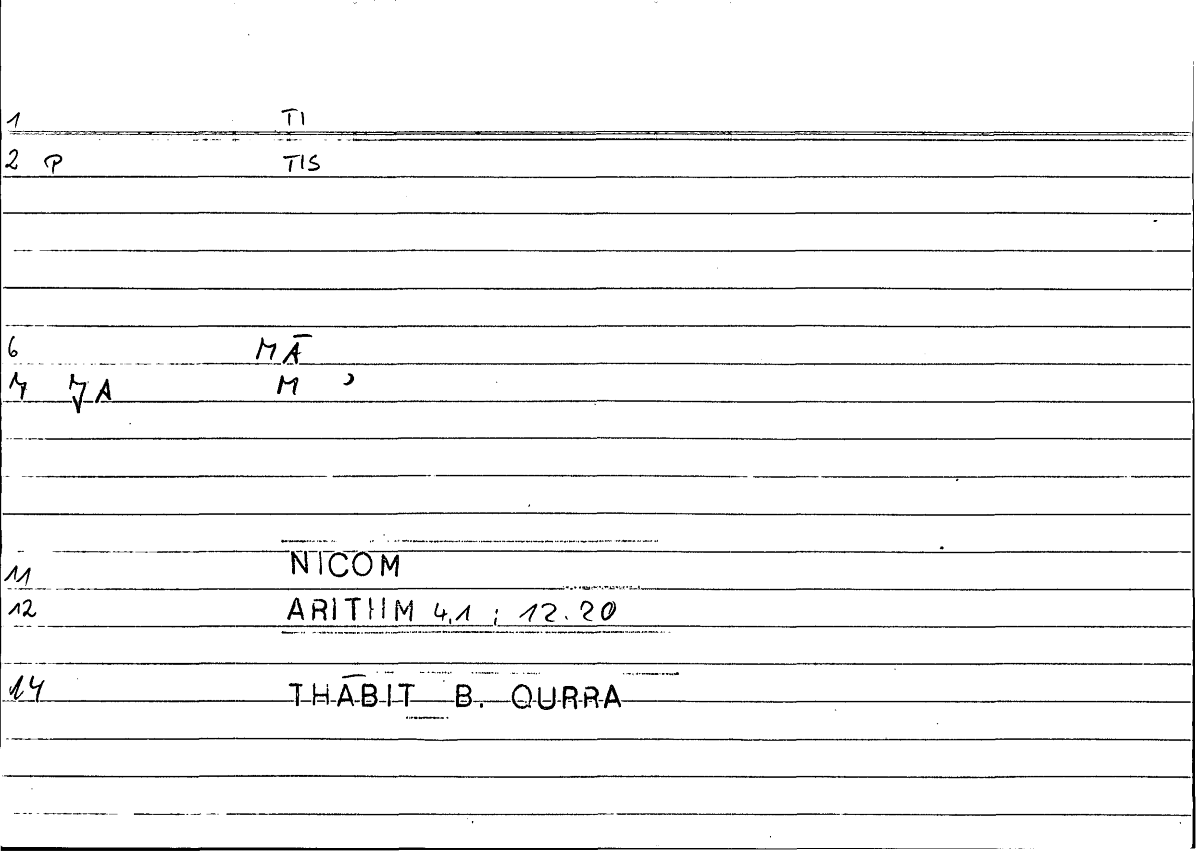 1 TI
2 P TIS
6 MĀ
M A M ʾ
11 NICOM
12 ARITHM 4,1 ; 12.20
14 THĀBIT B. QURRA